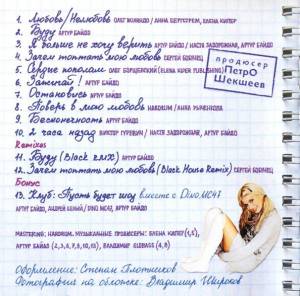 1. Любовь/Нелюбовь ОЛЕГ ЖАНАЛДО / АННА БЕРГСТРЕМ, ЕЛЕНА КИПЕР
2. Буду АРТУР БАЙДО
3. Я больше не хочу верить АРТУР БАЙДО / НАСТЯ ЗАДОРОЖНАЯ, АРТУР БАЙДО
4. Зачем топтать мою любовь СЕРГЕЙ БОЯНЕЦ
5. Сердце пополам ОЛЕГ БОРЩЕВСКИЙ (ELENA KIPER PUBLISHING)
6. Запетай! АРТУР БАЙДО
7. Остановись АРТУР БАЙДО
8. Поверь в мою любовь HARDRUM /
9. Бесконечность АРТУР БАЙДО
10. 2 часа назад ВИКТОР ГУРЕВИЧ / НАСТЯ ЗАДОРОЖНАЯ, АРТУР БАЙДО
Remixes
11. Буду (Black RMX) АРТУР БАЙДО
12. Зачем топтать мою любовь (Black House Remix) СЕРГЕЙ БОЯНЕЦ
Бонус
13. Клуб: Пусть будет шоу вместе с Dino MC47
АРТУР БАЙДО, АНДРЕЙ БЕЛЫЙ / DINO MC47, АРТУР БАЙДО
MASTERING: HARDRUM. МУЗЫКАЛЬНЫЕ ПРОДЮСЕРЫ: ЕЛЕНА КИПЕР (1,5),
АРТУР БАЙДО (2,3,6,7,9,10,13), ВЛАДИМИР GLOBASS (4,8)
Оформление: Степан Плотников
Фотография на обложке: Владимир Широков
продюсер
Петр
Шекшеев